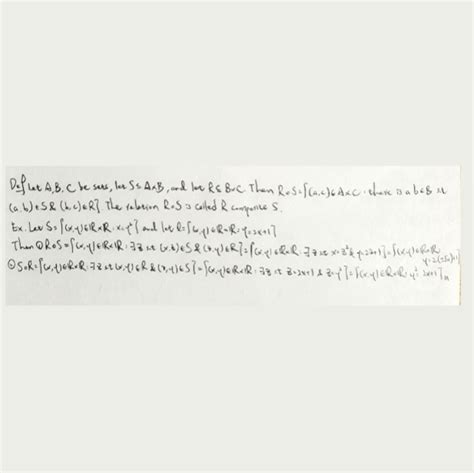 Def Let A, B, C be sets, let S ⊆ A×B, and let R ⊆ B×C. Then R∘S = {(a,c) ∈ A×C : there is a b ∈ B st
(a,b) ∈ S & (b,c) ∈ R} The relation R∘S is called R composite S.
Ex. Let S = {(x,y) ∈ R×R : x=y²} and let R = {(x,y) ∈ R×R : y=2x+1}
Then ① R∘S = {(x,y) ∈ R×R : ∃ z st (x,z) ∈ S & (z,y) ∈ R} = {(x,y) ∈ R×R : ∃ z st x=z² & y=2z+1} = {(x,y) ∈ R×R
y=2(±√x)+1}
② S∘R = {(x,y) ∈ R×R : ∃ z st (x,z) ∈ R & (z,y) ∈ S} = {(x,y) ∈ R×R : ∃ z st z=2x+1 & z=y²} = {(x,y) ∈ R×R : y²=2x+1}